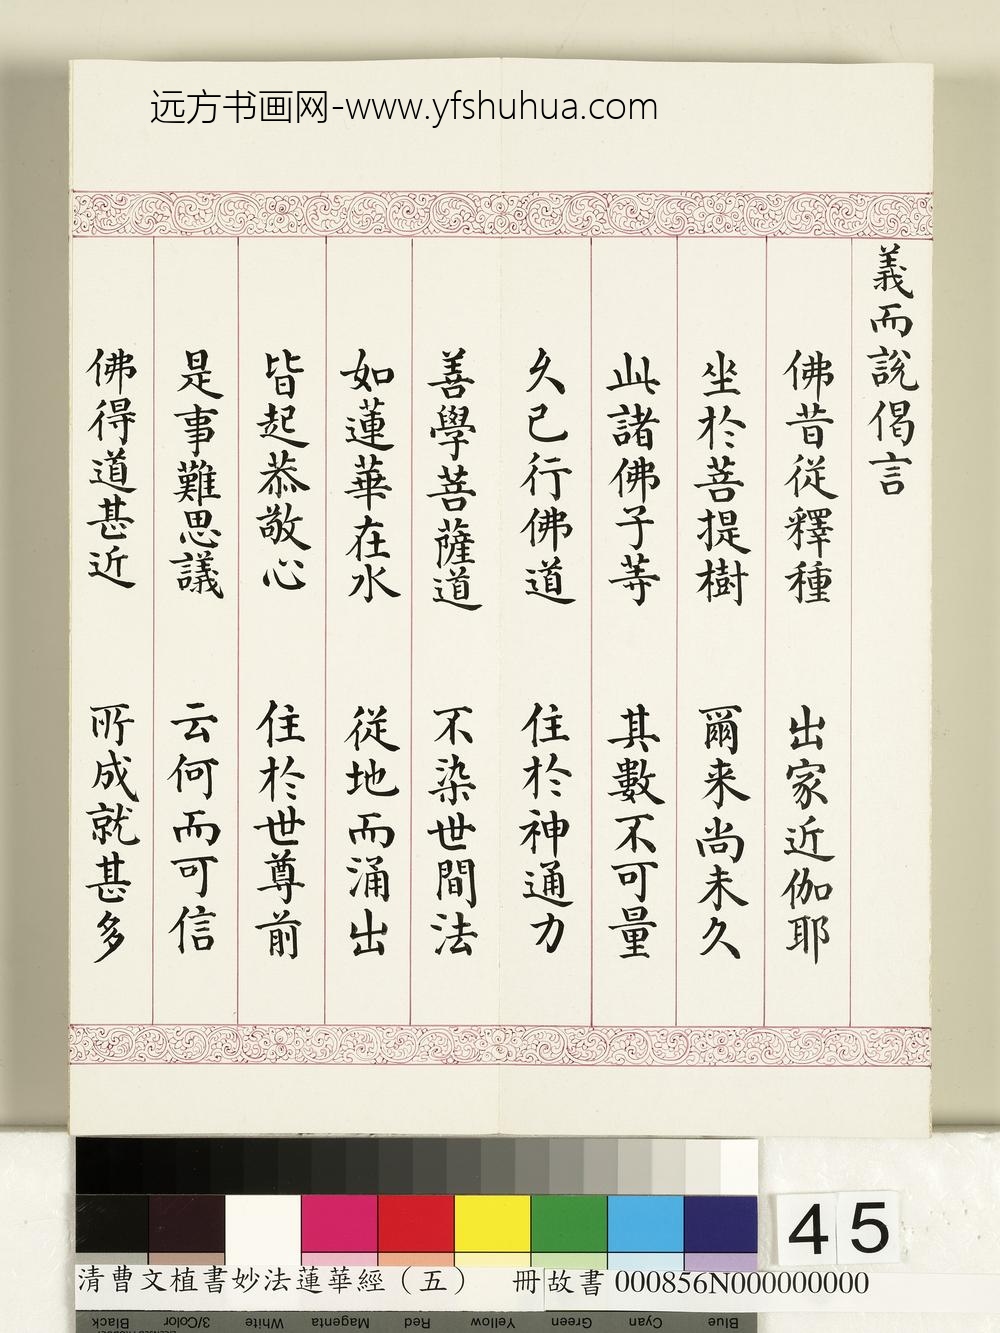 远方书画网-www.yfshuhua.com
義而說偈言
佛昔從釋種 出家近伽耶
坐於菩提樹 爾来尚未久
此諸佛子等 其數不可量
久已行佛道 住於神通力
善學菩薩道 不染世間法
如蓮華在水 從地而涌出
皆起恭敬心 住於世尊前
是事難思議 云何而可信
佛得道甚近 所成就甚多
45
清曹文植書妙法蓮華經（五） 冊故書 000856N000000000
Black 3/Color White Magenta Red Yellow Green Cyan Blue